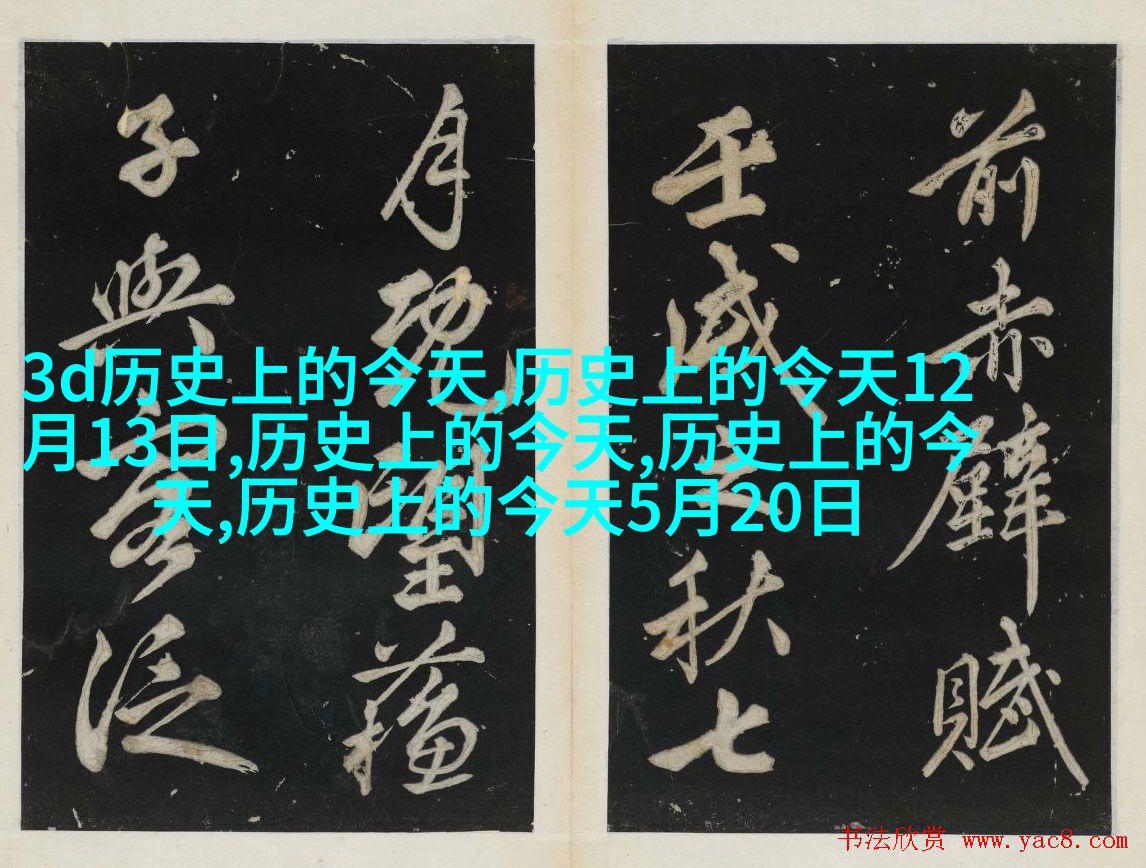 前赤壁賦
壬戌之秋七
月既望蘇
子與客泛
3d历史上的今天,历史上的今天12
月13日,历史上的今天,历史上的今
天,历史上的今天5月20日
书法欣赏 www.yac8.com